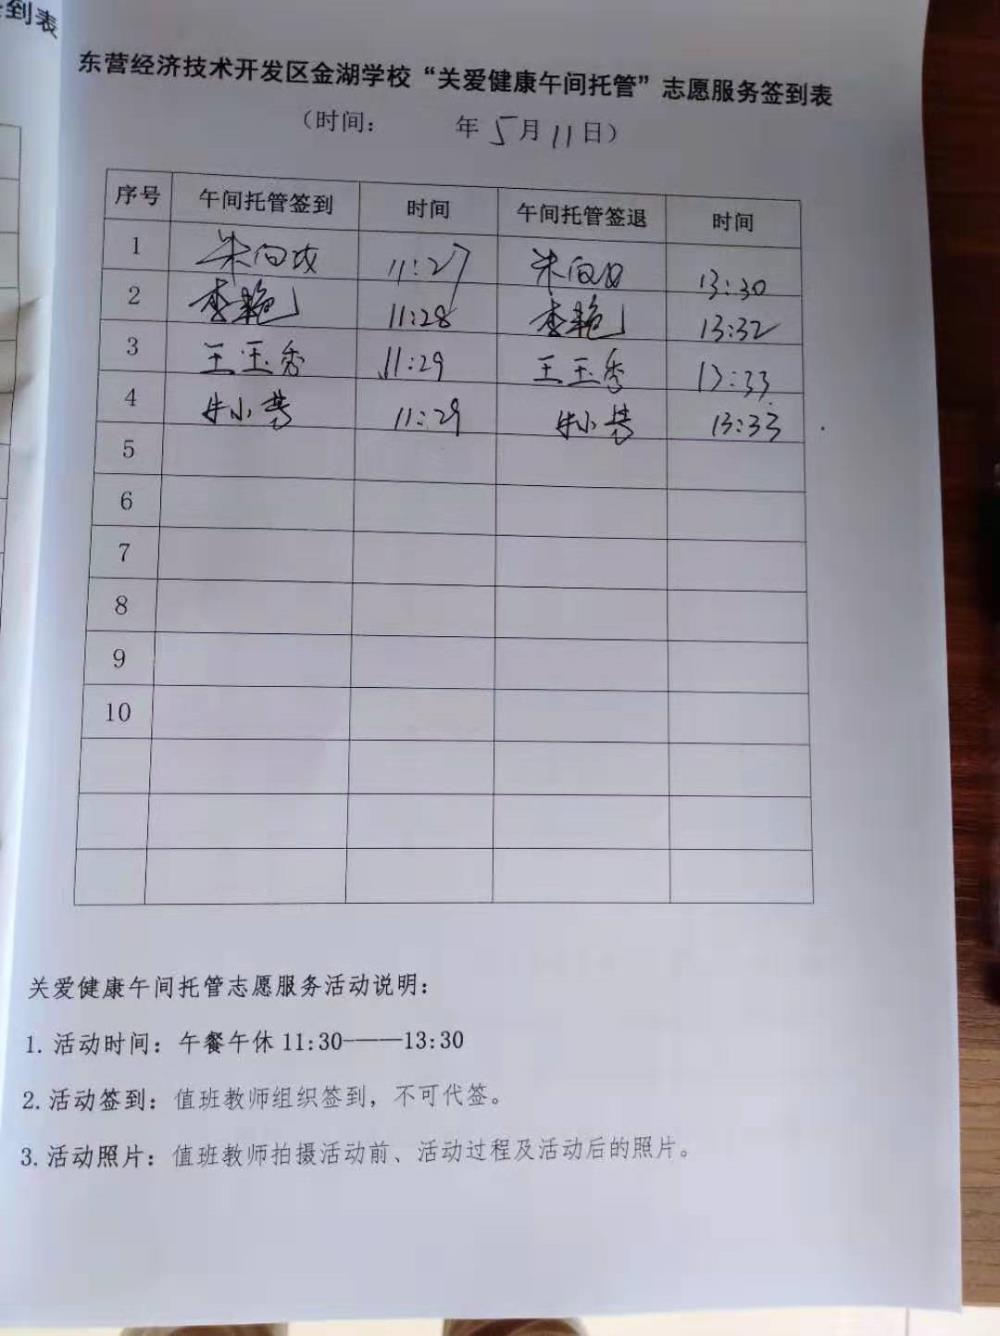 到表
东营经济技术开发区金湖学校“关爱健康午间托管”志愿服务签到表
（时间： 年 5月11日）
序号 午间托管签到 时间 午间托管签退 时间
1 朱向 11:27 朱向 13:30
2 李艳 11:28 李艳 13:32
3 王玉秀 11:29 王玉秀 13:33
4 小 11:29 小 13:33
5
6
7
8
9
10
关爱健康午间托管志愿服务活动说明：
1. 活动时间：午餐午休 11:30——13:30
2. 活动签到：值班教师组织签到，不可代签。
3. 活动照片：值班教师拍摄活动前、活动过程及活动后的照片。